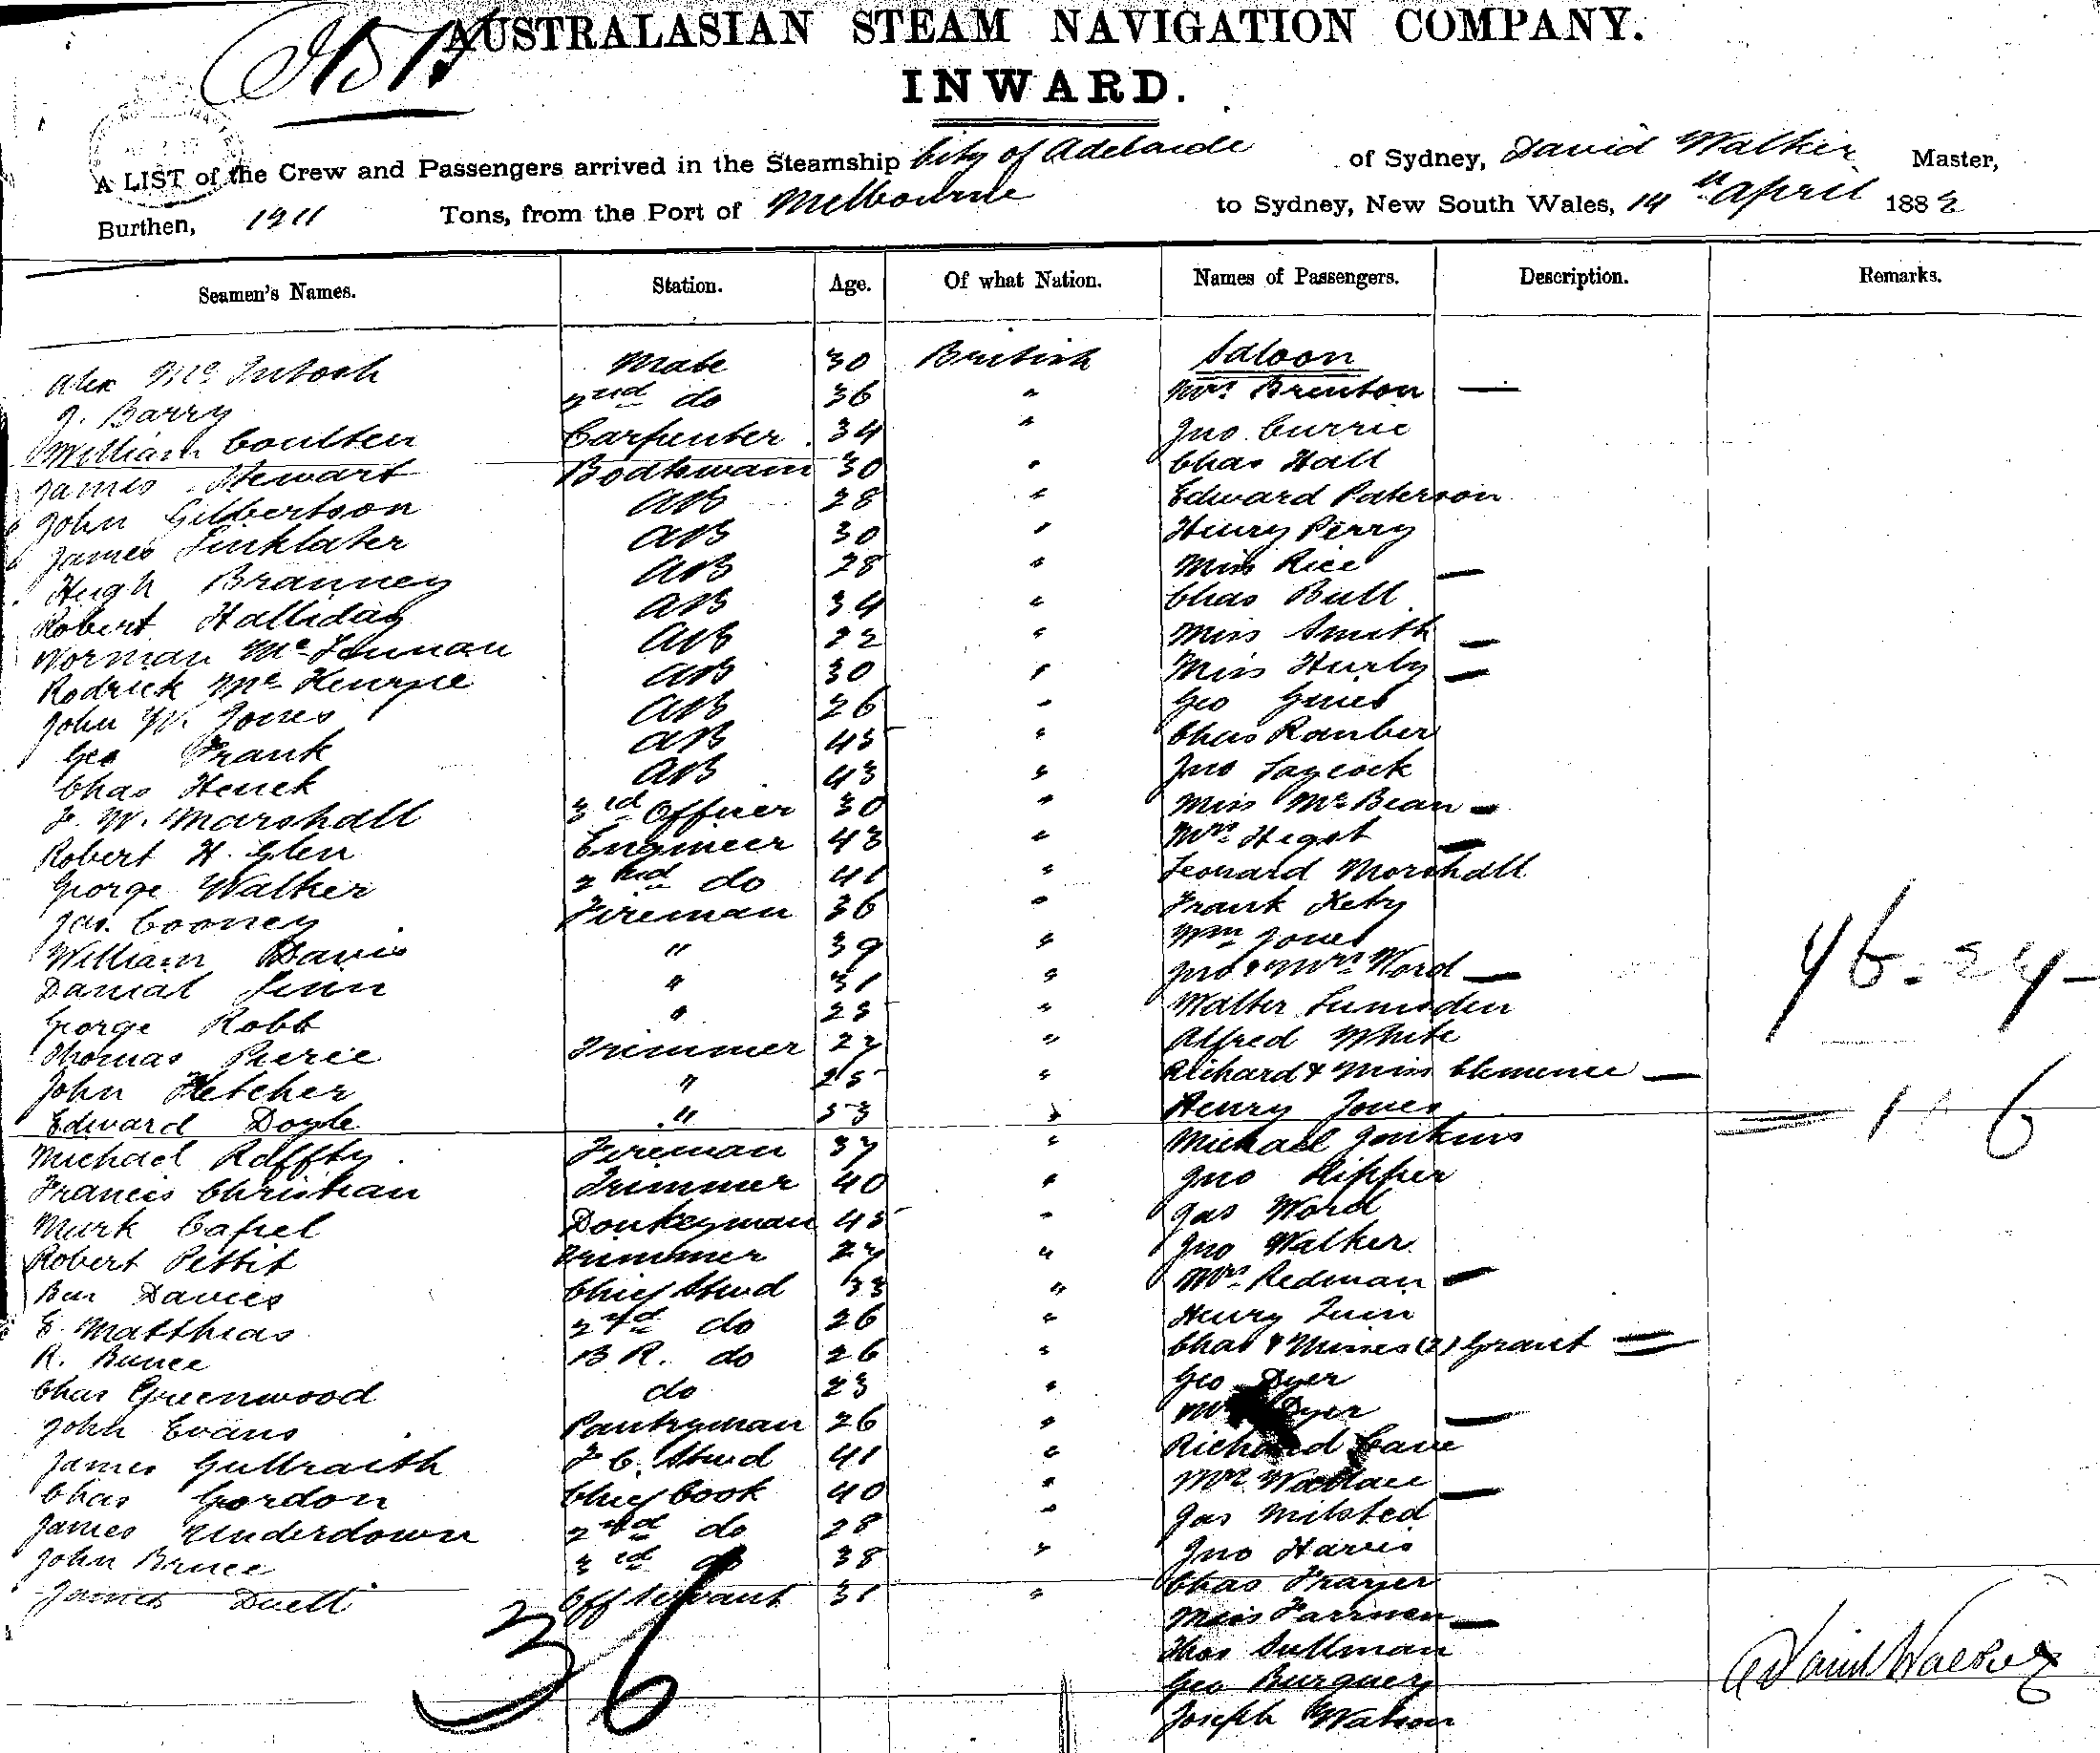 AUSTRALASIAN STEAM NAVIGATION COMPANY.
INWARD.
A LIST of the Crew and Passengers arrived in the Steamship City of Adelaide of Sydney, David Walker Master,
Burthen, 1211 Tons, from the Port of Melbourne to Sydney, New South Wales, 14th April 1882
Seamen's Names. Station. Age. Of what Nation. Names of Passengers. Description. Remarks.
Alex McIntosh Mate 30 British Saloon
J. Barry 2nd do 36 " Mrs Brenton —
William Coulten Carpenter 34 " Jno Currie
James Stewart Boatswain 30 " Chas Hall
John Gilbertson AB 28 " Edward Paterson
James Sinklater AB 30 " Henry Perry
Hugh Branney AB 28 " Miss Rice —
Robert Halliday AB 34 " Chas Bull
Norman McLennan AB 22 " Miss Smith —
Rodrick McKenzie AB 30 " Miss Hurly —
John W. Jones AB 26 " Geo
Geo Frank AB 45 " Chas Ranber
Chas Henek AB 43 " Jno Laycock
F. W. Marshall 3rd Officer 30 " Miss McBean —
Robert H. Glen Engineer 43 " Mrs —
George Walker 2nd do 41 " Leonard Morshall
Jas. Cooney Fireman 36 " Frank
William Davis " 39 " Wm Jones
Danial Linn " 31 " Jno & Mrs Word —
George Robb " 23 " Walter Lumsden
Thomas Pierie Trimmer 27 " Alfred White
John Fletcher " 25 " Richard & Miss Clemence —
Edward Doyle " 53 " Henry Jones
Michael Raffty Fireman 37 " Michael Jenkins
Francis Christian Trimmer 40 " Jno
Mark Capel Donkeyman 45 " Jas Word
Robert Pettit Trimmer 27 " Jno Walker
Ben Davies Chief Stwd 33 " Mrs Redman —
E. Matthias 2nd do 26 " Henry
R. Bunce B R. do 26 " Chas & Misses (2) Grant =
Chas Greenwood do 23 " Geo Dyer
John Evans Pantryman 26 " Mrs Dyer —
James Gullraith F C. Stwd 41 " Richard Cave
Chas Gordon Chief Cook 40 " Mrs Wallace —
James Underdown 2nd do 28 " Jas Milsted
John Bruce 3rd do 38 " Jno Harris
James Duell Off Servant 31 " Chas Frazer
Miss Farmen —
36 Thos Sullman
Geo
Joseph Watson
David Walker